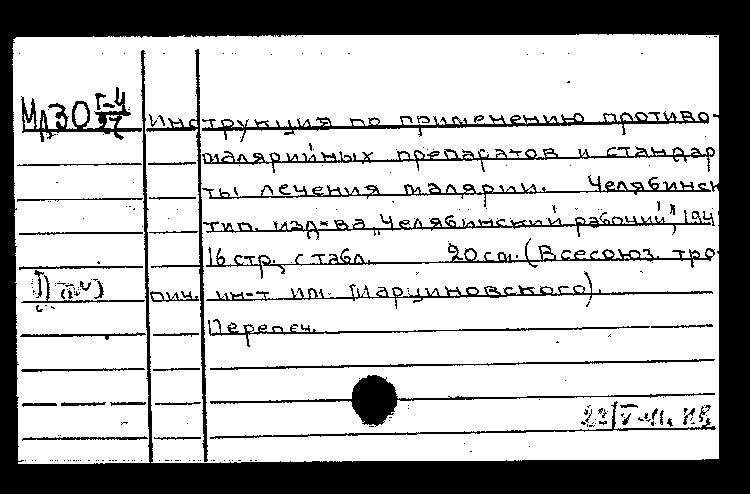 Мр30 Г-4
97
Инструкция по применению противо-
малярийных препаратов и стандар
ты лечения малярии. Челябинск
тип. изд-ва "Челябинский рабочий", 194
16 стр. с табл. 20 см. (Всесоюз. тро-
пич. ин-т им. Марциновского).
Перепеч.
23/V-41.